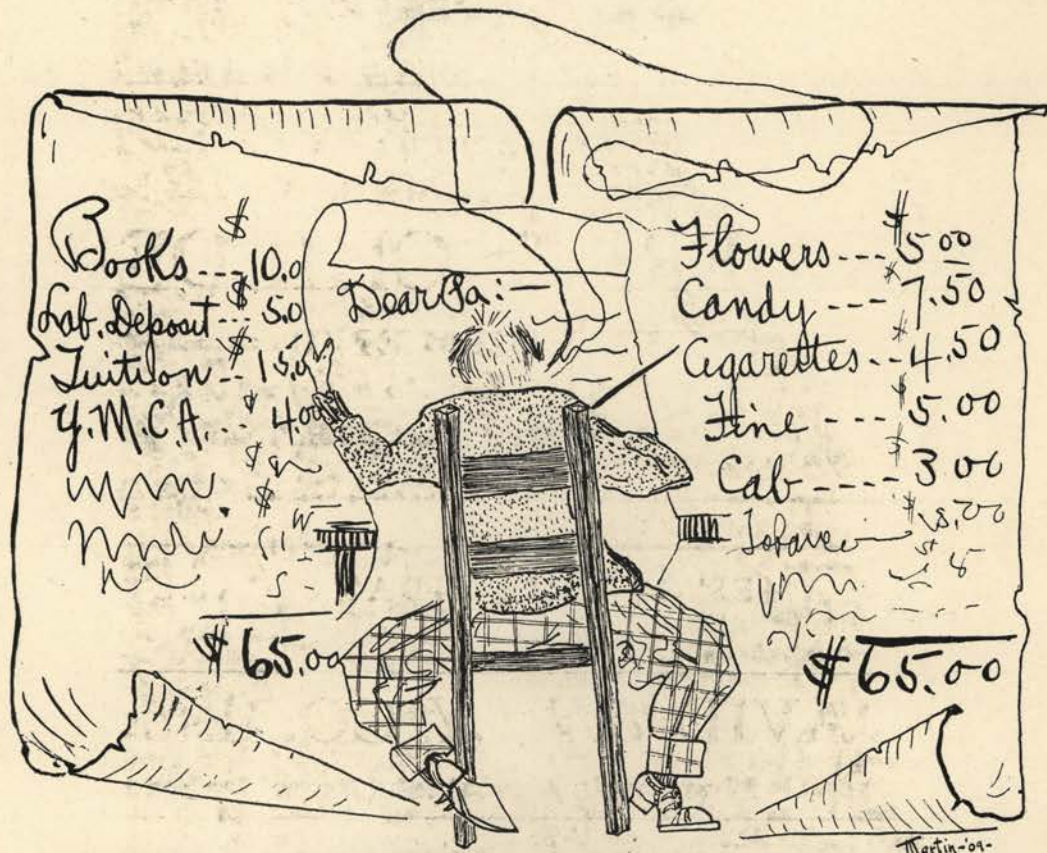 Books --- $ 10.0
Lab. Deposit --- $ 5.0
Tuition -- $ 15.0
Y.M.C.A. -- $ 4.00
$ 65.00
Dear Pa:—
Flowers --- $ 5.00
Candy ---- $ 7.50
Cigarettes -- $ 4.50
Fine ---- $ 5.00
Cab ---- $ 3.00
$ 65.00
Martin-'09-